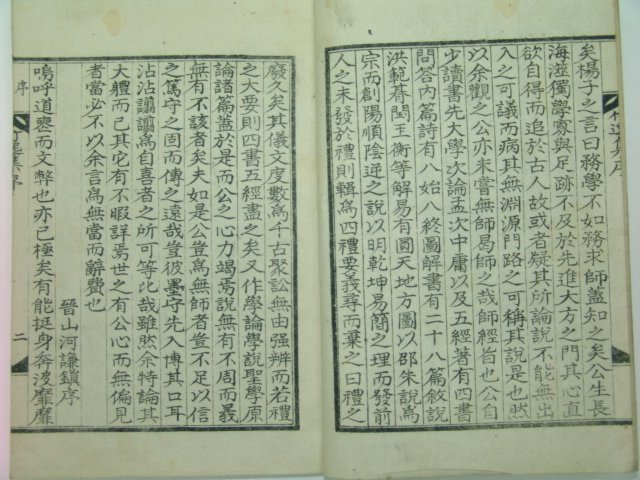 矣楊子之言曰務學不如務求師蓋知之矣公生長
海澨獨學寡與足跡不及於先進大方之門其心直
欲自得而追於古人故或者疑其所論說不能無出
入之可議而病其無淵源門路之可稱其說是也然
以余觀之公亦未嘗無師曷師之哉師經皆也公自
少讀書先大學次論孟次中庸以及五經著有四書
問答內篇詩有八始八終圖解書有二十八篇敘說
洪範朞閏王衡等解易有圓天地方圖以邵朱說爲
宗而創陽順陰逆之說以明乾坤易簡之理而發前
人之未發於禮則輯爲四禮要義尋而棄之曰禮之
廢久矣其儀文度數爲千古聚訟無由强辨而若禮
之大要則四書五經盡之矣又作學論學說聖學原
論諸篇蓋於是而公之心力竭焉說無有不周而義
無有不該者矣夫如是公豈爲無師者豈不足以信
之篤守之固而傳之遠哉豈彼墨守先入博其口耳
沾沾諓諓爲自喜者之所可等比哉雖然余特論其
大體而已其它有不暇詳焉世之有公心而無偏見
者當必不以余言爲無當而辭費也
晉山河謙鎭序
嗚呼道喪而文弊也亦已極矣有能挺身奔波靡靡
序
二